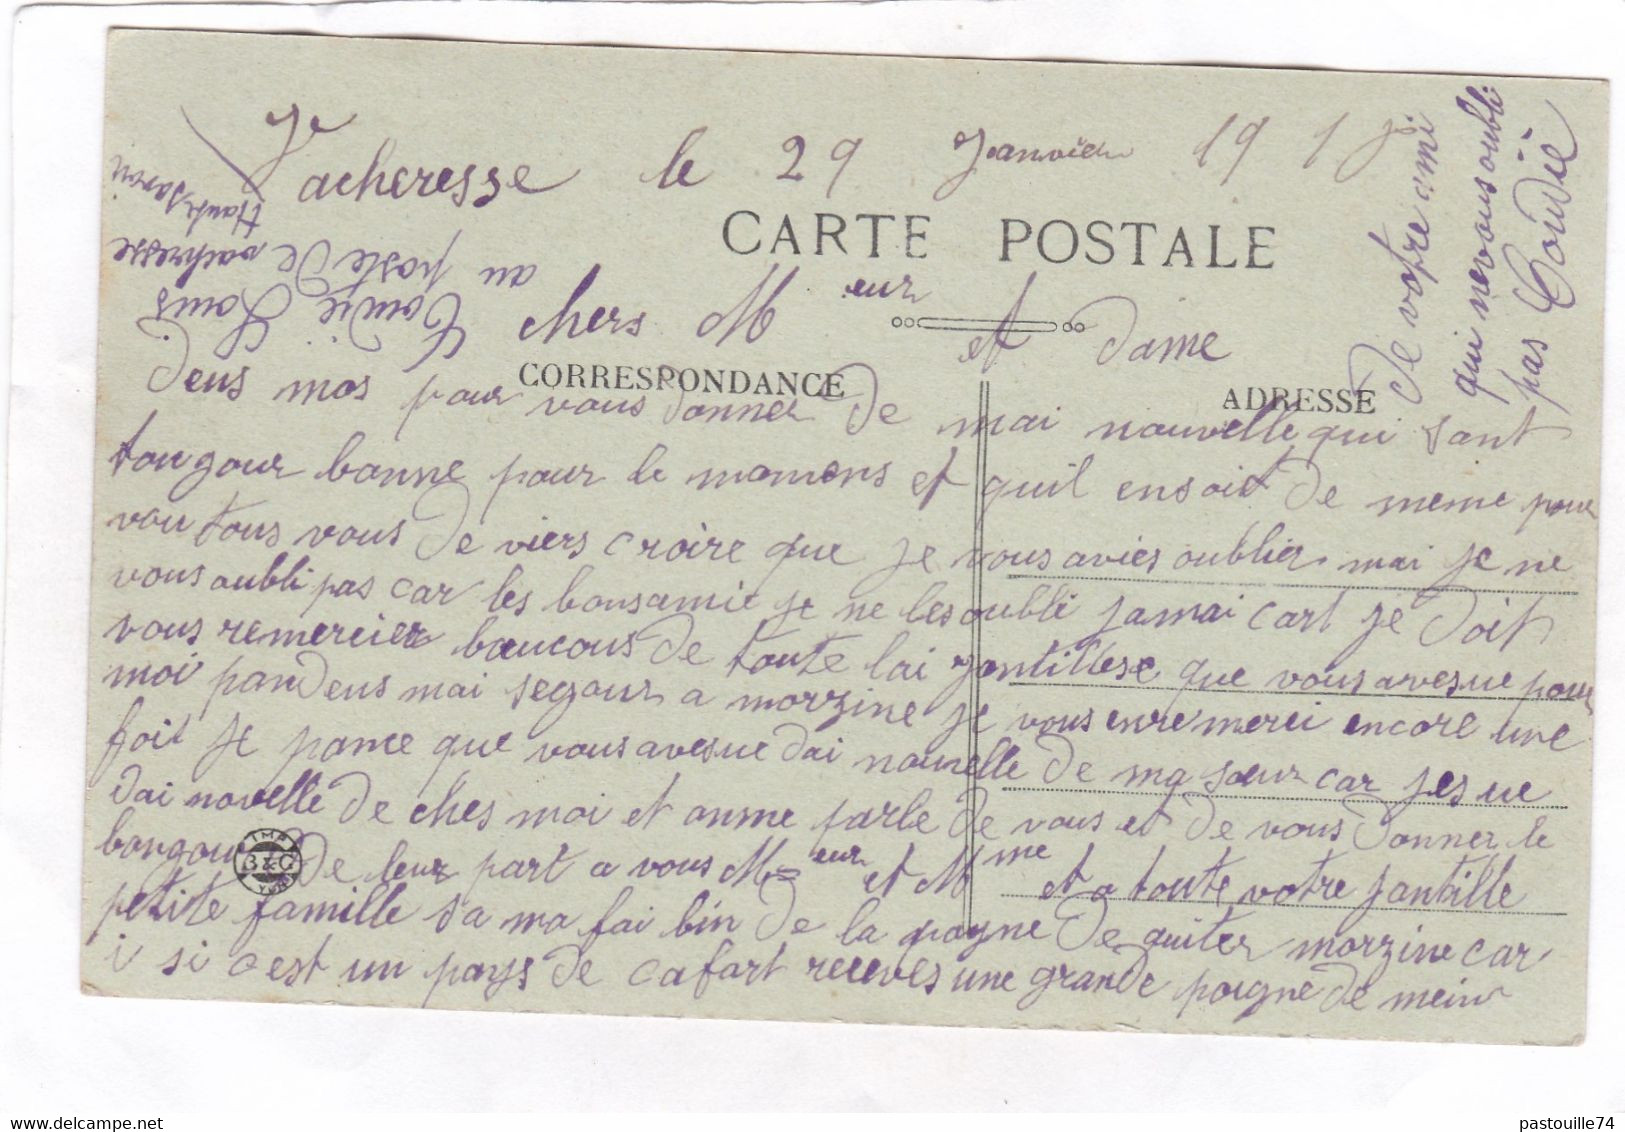 Vacheresse le 29 Janvier 191
CARTE POSTALE
chers Meur et Dame
CORRESPONDANCE
ADRESSE
Deus mos pour vous donner de mai nouvelle qui sont
tougour bonne pour le momens et quil ensoit de meme pour
vou tous vous de viers croire que je vous avies oublier mai je ne
vous oubli pas car les bonsamie je ne les oubli jamai cart je doit
vous remercier baucous de toute lai jantillese que vous avesue pour
moi pandens mai segour a morzine je vous enremerci encore une
foit je pance que vous avesue dai nouvelle de ma sœur car jesue
dai novelle de ches moi et onme parle de vous et de vous donner le
bongour de leur part a vous Meur et Mme et a toute votre jantille
petite famille sa ma fai bin de la payne de quiter morzine car
i si cest un pays de cafart receves une grande poigne de mein
De votre ami
qui ne vous oubli
pas Coudié
Coudié Louis
au poste de vachresse
Haute savoi
IMP
B & G
pastouille74